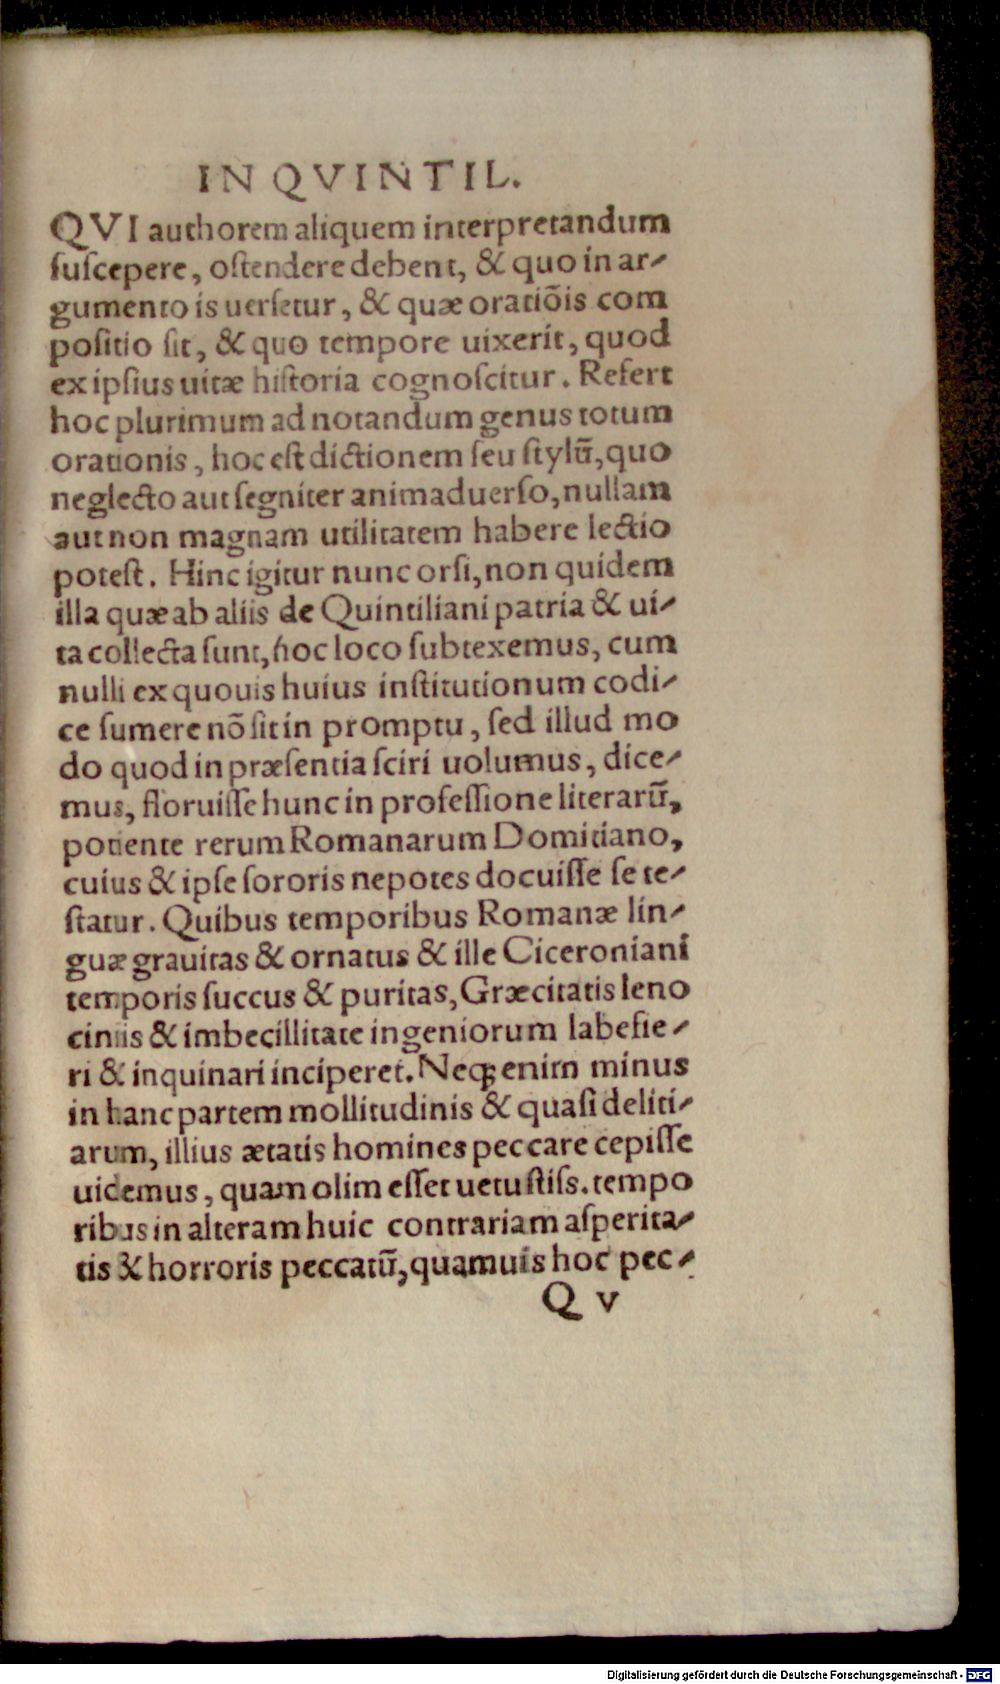 IN QVINTIL.
QVI authorem aliquem interpretandum
suscepere, ostendere debent, & quo in ar-
gumento is uersetur, & quæ oratiõis com
positio sit, & quo tempore uixerit, quod
ex ipsius uitæ historia cognoscitur. Refert
hoc plurimum ad notandum genus totum
orationis, hoc est dictionem seu stylũ, quo
neglecto aut segniter animaduerso, nullam
aut non magnam utilitatem habere lectio
potest. Hinc igitur nunc orsi, non quidem
illa quæ ab aliis de Quintiliani patria & ui-
ta collecta sunt, hoc loco subtexemus, cum
nulli ex quouis huius institutionum codi-
ce sumere nõ sit in promptu, sed illud mo
do quod in præsentia sciri uolumus, dice-
mus, floruisse hunc in professione literarũ,
potiente rerum Romanarum Domitiano,
cuius & ipse sororis nepotes docuisse se te-
statur. Quibus temporibus Romanæ lin-
guæ grauitas & ornatus & ille Ciceroniani
temporis succus & puritas, Græcitatis leno
ciniis & imbecillitate ingeniorum labefie-
ri & inquinari inciperet. Neqꝫ enim minus
in hanc partem mollitudinis & quasi deliti-
arum, illius ætatis homines peccare cepisse
uidemus, quam olim esset uetustiss. tempo
ribus in alteram huic contrariam asperita-
tis & horroris peccatũ, quamuis hoc pec-
Q v
Digitalisierung gefördert durch die Deutsche Forschungsgemeinschaft - DFG